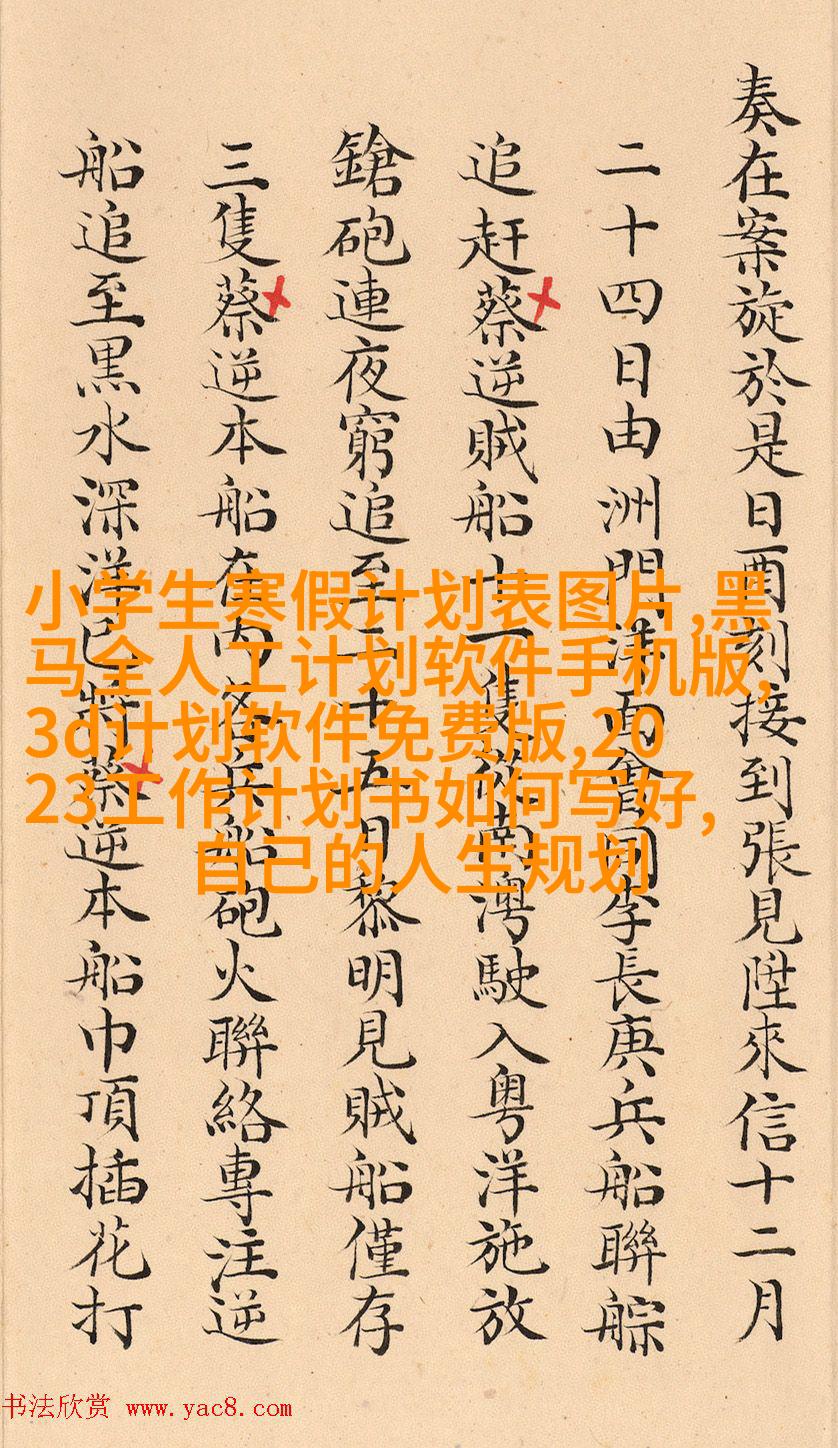 奏在案旋於是日酉刻接到張見陞來信十二月
二十四日由洲門洋面會同李長庚兵船聯䑸
追赶蔡逆賊船十一隻從南灣駛入粤洋施放
鎗砲連夜窮追至二十五日黎明見賊船僅存
三隻蔡逆本船在內各兵船砲火聯絡專注逆
船追至黒水深洋已將蔡逆本船巾頂插花打
小学生寒假计划表图片,黑
马全人工计划软件手机版,
3d计划软件免费版,20
23工作计划书如何写好,
自己的人生规划
书法欣赏 www.yac8.com